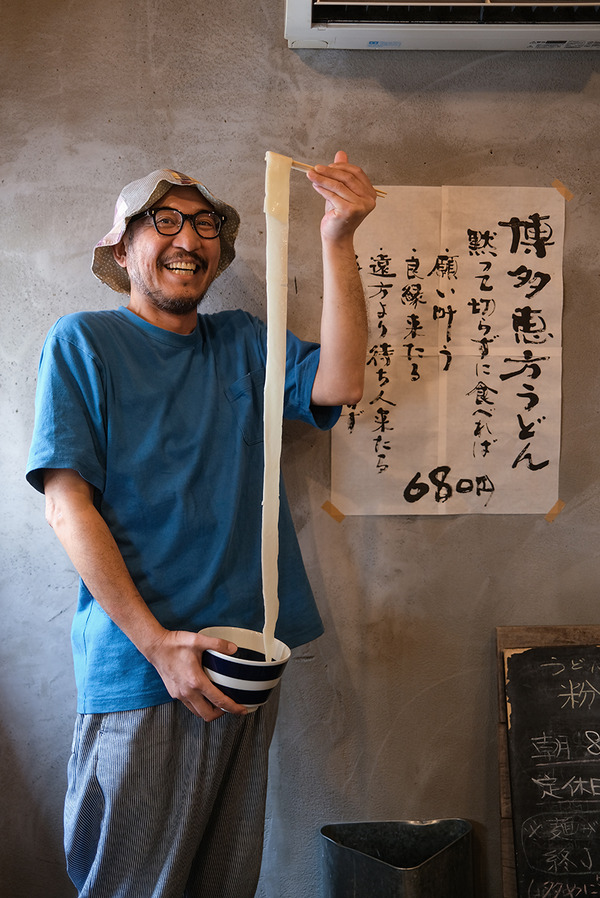 博多恵方うどん
黙って切らずに食べれば
願い叶う
良縁来たる
遠方より待ち人来たる
ず
680円
うどん
粉
朝8
定休日
麺が
終了